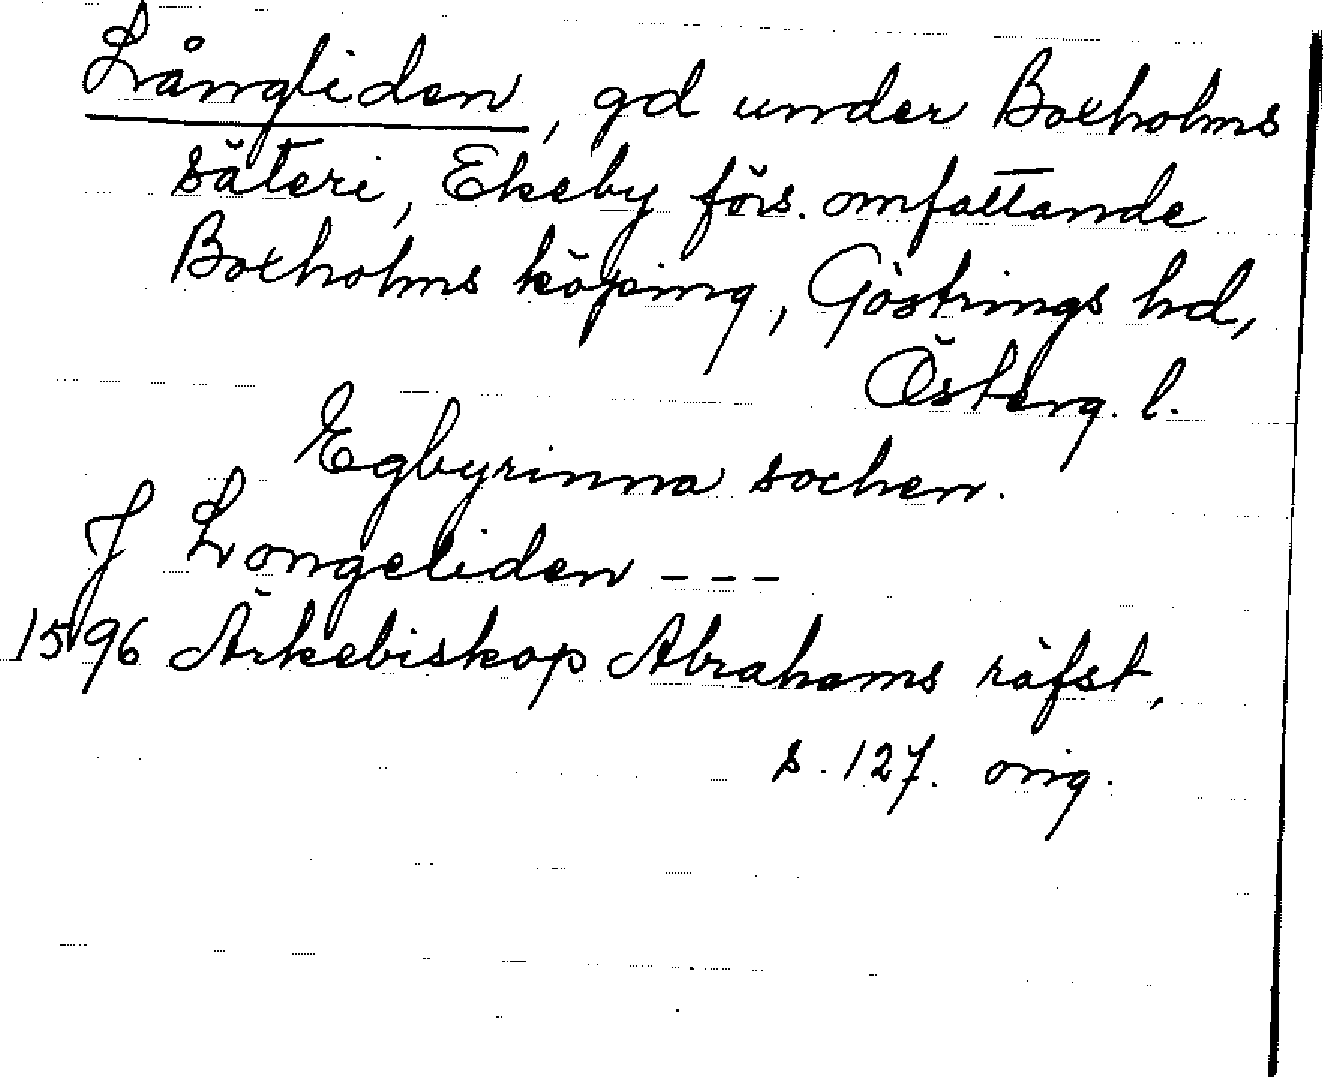 Långliden, gd under Boxholms
säteri, Ekeby förs. omfattande
Boxholms köping, Göstrings hd,
Österg. l.
Egbyrinna sochen.
J Longeliden - - -
1596 Ärkebiskop Abrahams räfst,
s. 127. orig.